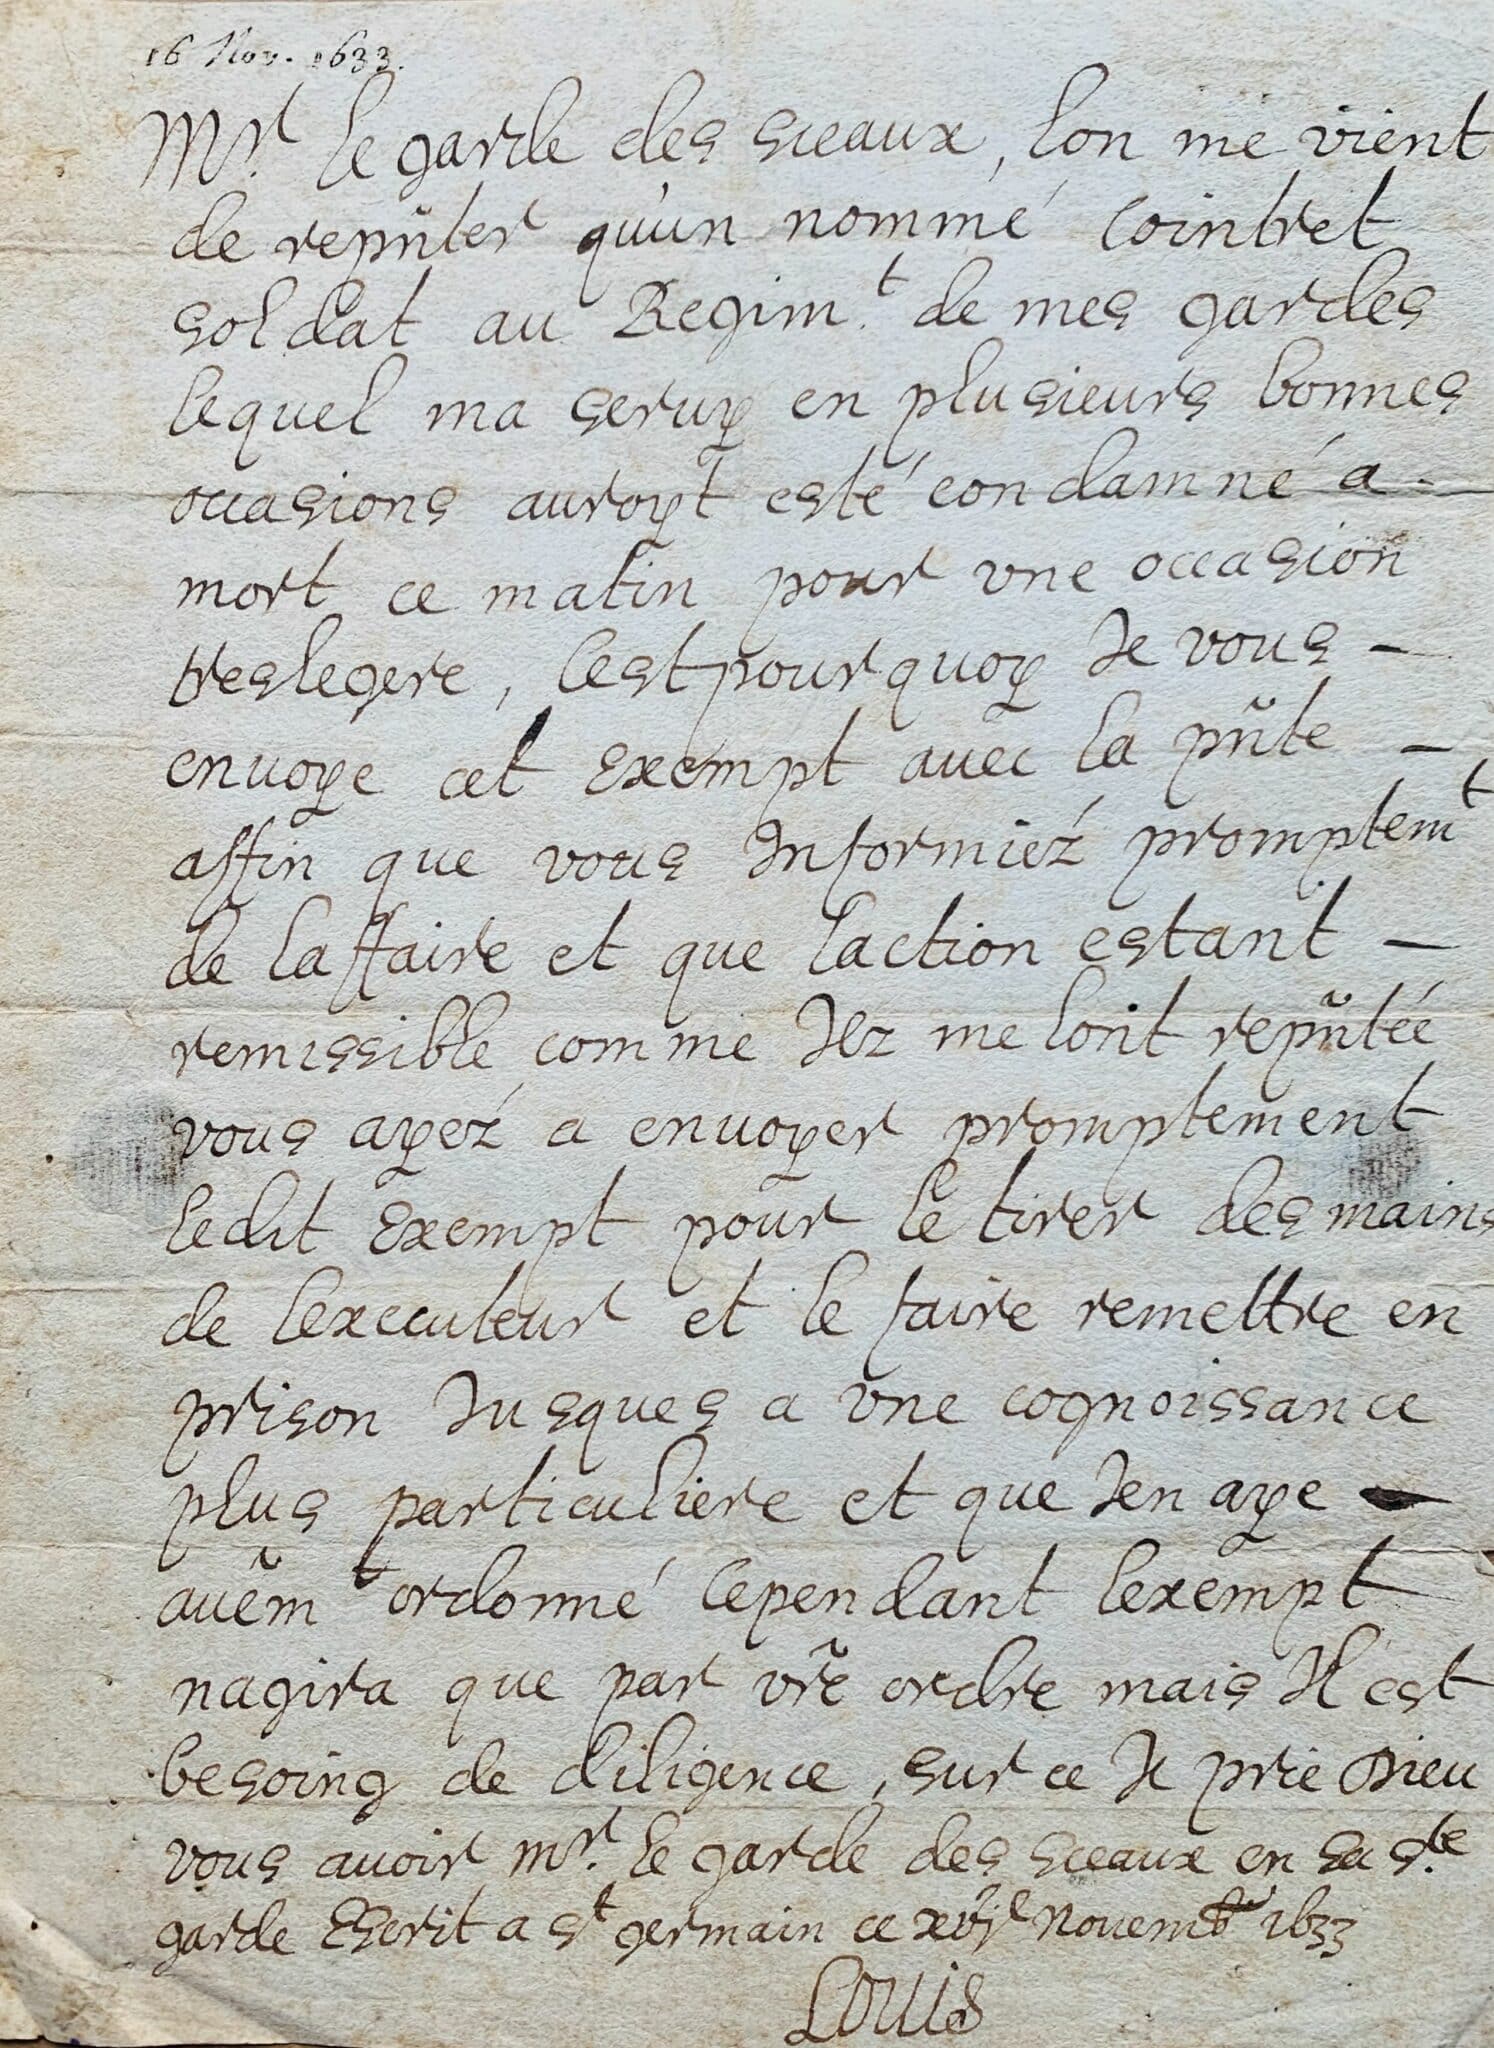 16 Nov. 1633.
Mr le garde des sceaux, lon me vient
de repñter qu'un nommé Cointret
soldat au Regim.t de mes gardes
lequel ma seruy en plusieurs bonnes
occasions auroyt esté condamné a
mort ce matin pour vne occasion
treslegere, Cest pourquoy Je vous -
enuoye cet Exempt auec la pñte -
affin que vous Informiéz promptemt
de laffaire et que laction estant -
remissible comme Ilz me lont repñtée
vous ayéz a enuoyer promptement
ledit Exempt pour le tirer des mains
de lexecuteur et le faire remettre en
prison Jusques a vne cognoissance
plus particuliere et que Jen aye -
auẽmt ordonné Cependant lexempt
nagira que par vr̃e ordre mais Il est
besoing de diligence, sur ce Je prie Dieu
vous auoir mr. le garde des sceaux en sa s.te
garde Escrit a st germain ce xvje Nouemb 1633
Louis